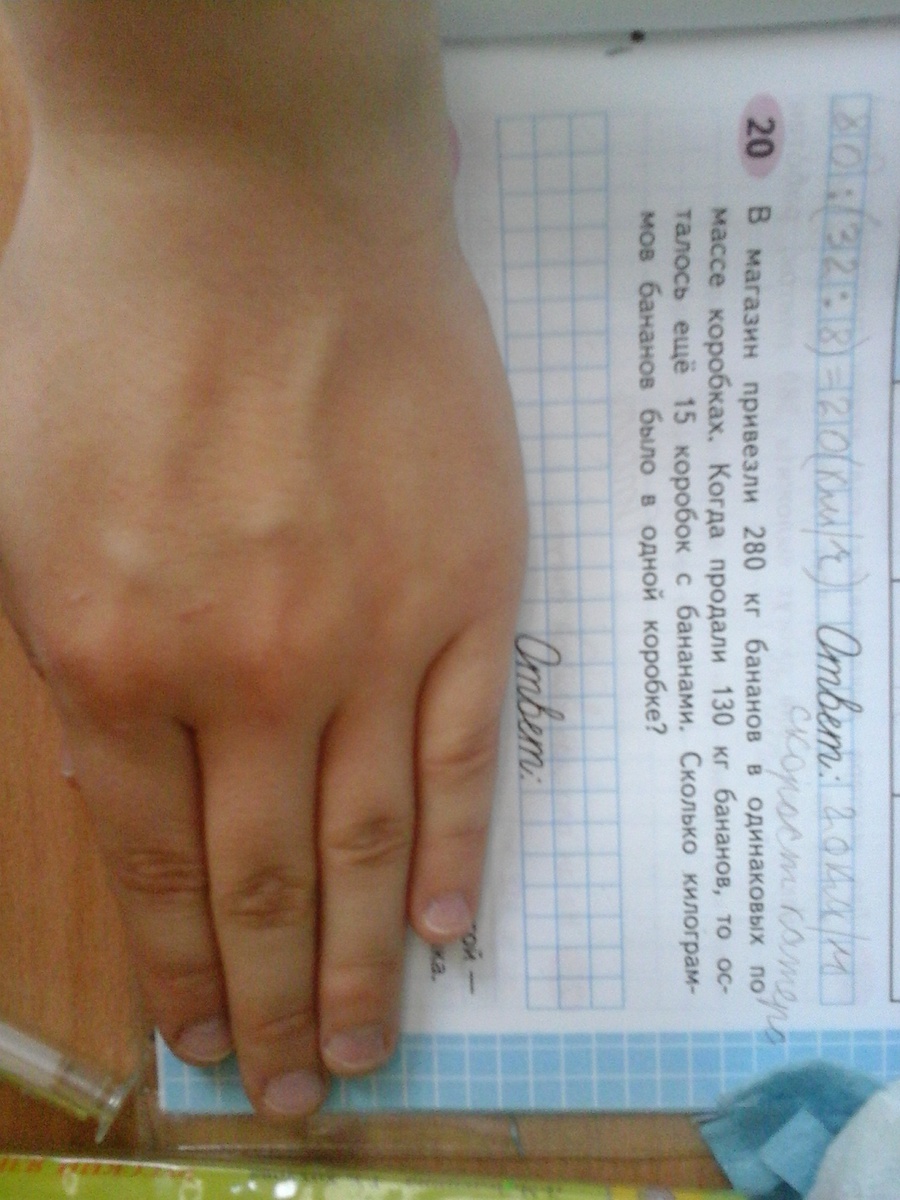 80:(32:8)=20(км/ч) Ответ: 20км/ч
скорость катера
20 В магазин привезли 280 кг бананов в одинаковых по
массе коробках. Когда продали 130 кг бананов, то ос-
талось ещё 15 коробок с бананами. Сколько килограм-
мов бананов было в одной коробке?
Ответ:
ой —
ка.